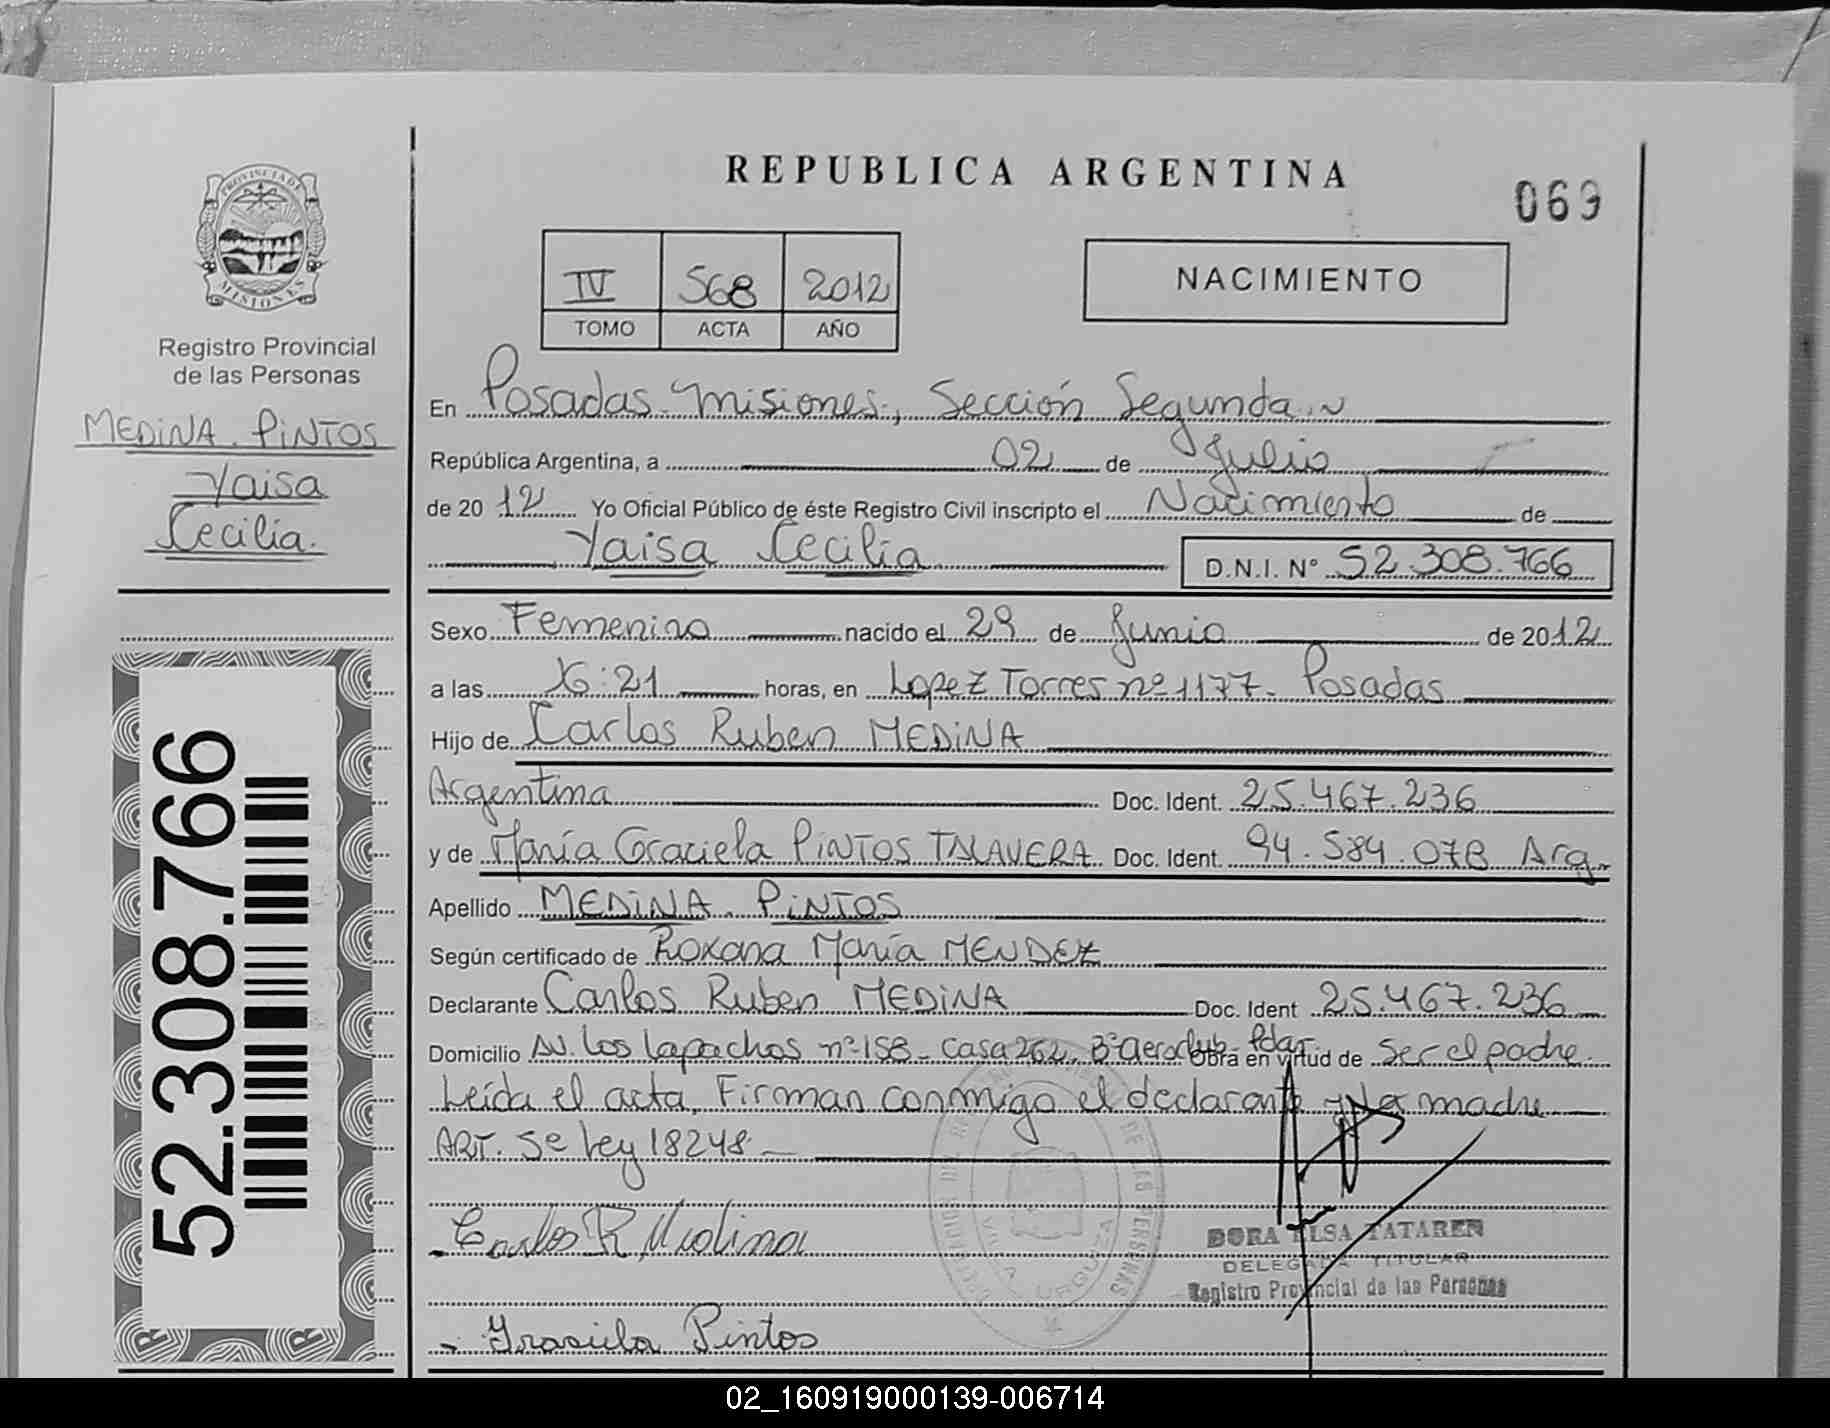 PROVINCIA DE
MISIONES
Registro Provincial
de las Personas
MEDINA. PINTOS
Yaisa
Cecilia.
52.308.766
REPUBLICA ARGENTINA
069
IV 568 2012
TOMO ACTA AÑO
NACIMIENTO
En Posadas. Misiones, Sección Segunda
República Argentina, a 02 de Julio
de 2012 Yo Oficial Público de éste Registro Civil inscripto el Nacimiento de
Yaisa Cecilia D.N.I. N° 52.308.766
Sexo Femenino nacido el 29 de Junio de 2012
a las 16:21 horas, en Lopez Torres nº 1177. Posadas
Hijo de Carlos Ruben MEDINA
Argentina Doc. Ident. 25.467.236
y de María Graciela PINTOS TALAVERA Doc. Ident. 94.584.078 Arg.
Apellido MEDINA. PINTOS
Según certificado de Roxana María MENDEZ
Declarante Carlos Ruben MEDINA Doc. Ident 25.467.236
Domicilio Av. Los Lapachos nº 158 - Casa 262. Bº aeroclub - Pdas. Obra en virtud de ser el padre.
Leída el acta, Firman conmigo el declarante y la madre
ART. 5º ley 18248.-
Carlos R Medina
DORA ELSA TATAREN
DELEGADA TITULAR
Registro Provincial de las Personas
VILLA URQUIZA
Grasiela Pintos
02_160919000139-006714